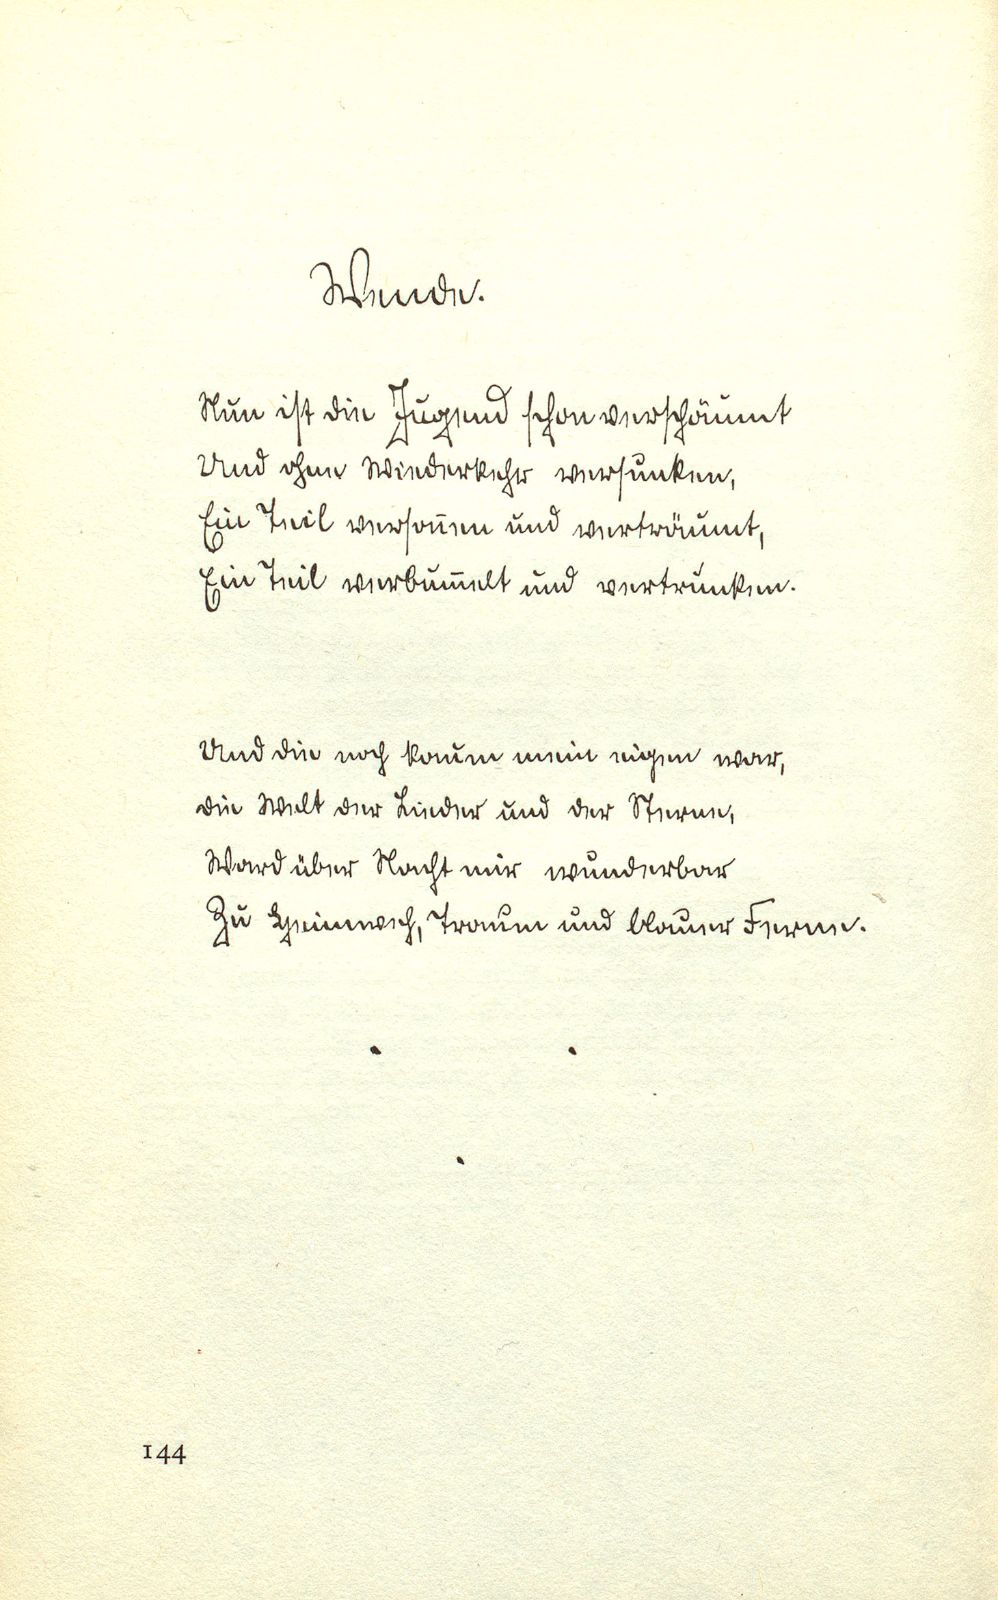 Wende.
Nun ist die Jugend schon verschäumt
Und ohne Wiederkehr versunken,
Ein Teil verson̄en und verträumt,
Ein Teil verbum̄elt und vertrunken.
Und die noch kaum mein eigen war,
die Welt der Lieder und der Sterne,
Ward über Nacht mir wunderbar
Zu Heimweh, Traum und blauer Ferne.
144